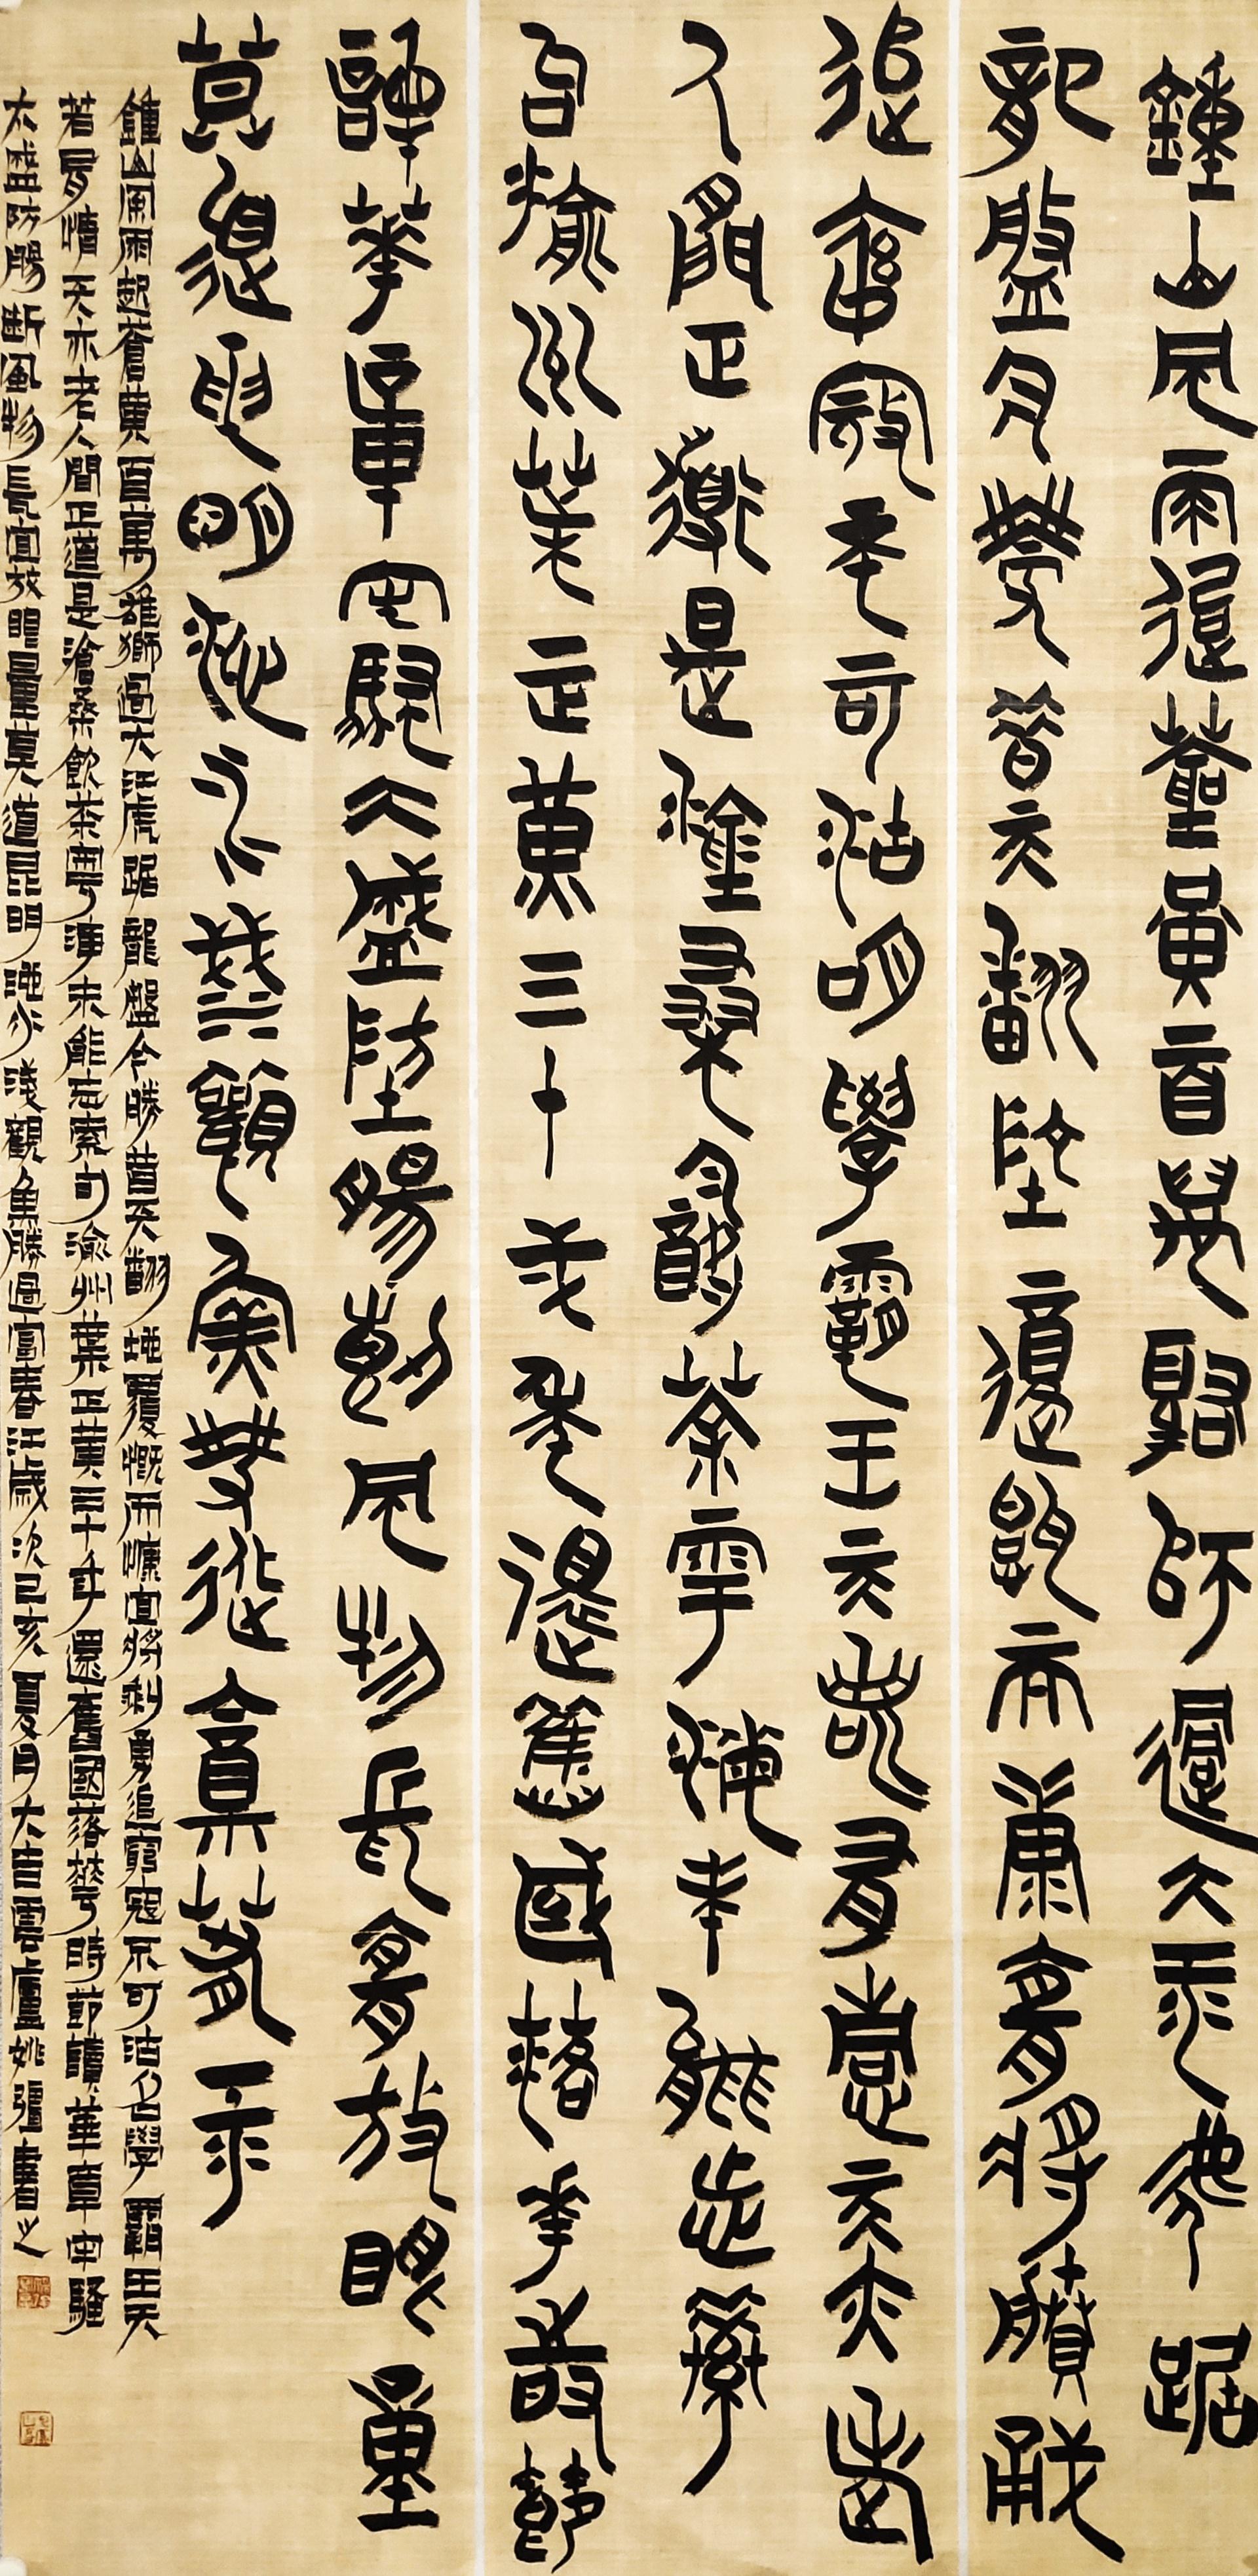 鍾山風雨起蒼黃百萬雄師過大江虎踞
龍盤今勝昔天翻地覆慨而慷宜將剩勇
追窮寇不可沽名學霸王天若有情天亦老
人間正道是滄桑飲茶粵海未能忘索
句渝州葉正黃三十弌年還舊國落華時節
讀華章牢騷太盛防腸斷風物長宜放眼量
莫道昆明池水淺觀魚勝過富春江
鍾山風雨起蒼黃百萬雄獅過大江虎踞龍盤今勝昔天翻地覆慨而慷宜將剩勇追窮寇不可沽名學霸王天
若有情天亦老人間正道是滄桑飲茶粵海未能忘索句渝州葉正黃三十年還舊國落華時節讀華章牢騷
太盛防腸斷風物長宜放眼量莫道昆明池水淺觀魚勝過富春江歲次己亥夏月大吉雲廬姚疆書之